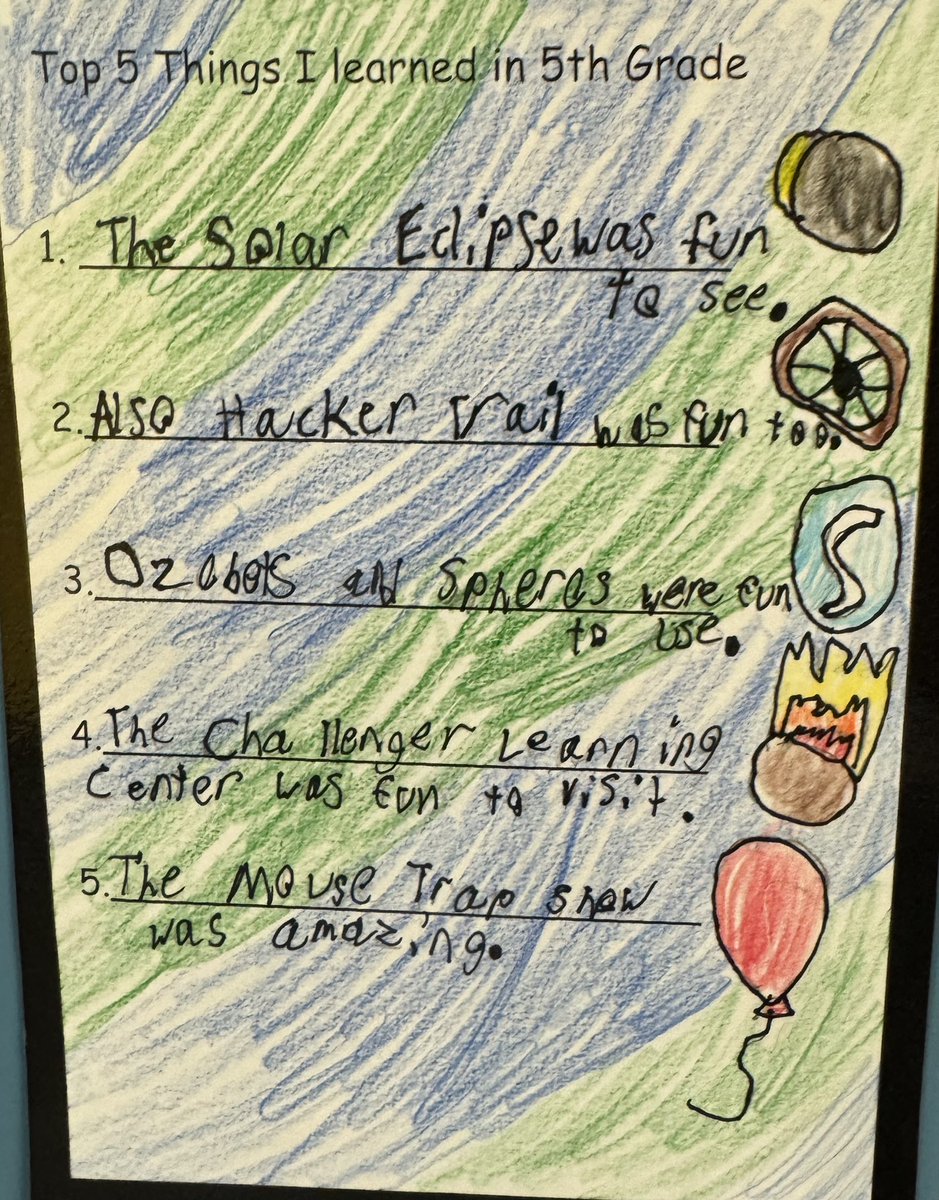 Top 5 Things I learned in 5th Grade
1. The Solar Eclipse was fun
to see.
2. Also Hacker Trail was fun too.
3. Ozobots and Spheros were fun
to use.
S
4. The Challenger Learning
Center was fun to visit.
5. The Mouse Trap show
was amazing.